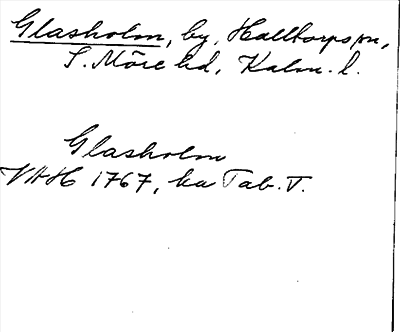 Glasholm, by, Halltorps sn,
S. Möre hd, Kalm. l.
Glasholm
VAH 1767, ka Tab. V.